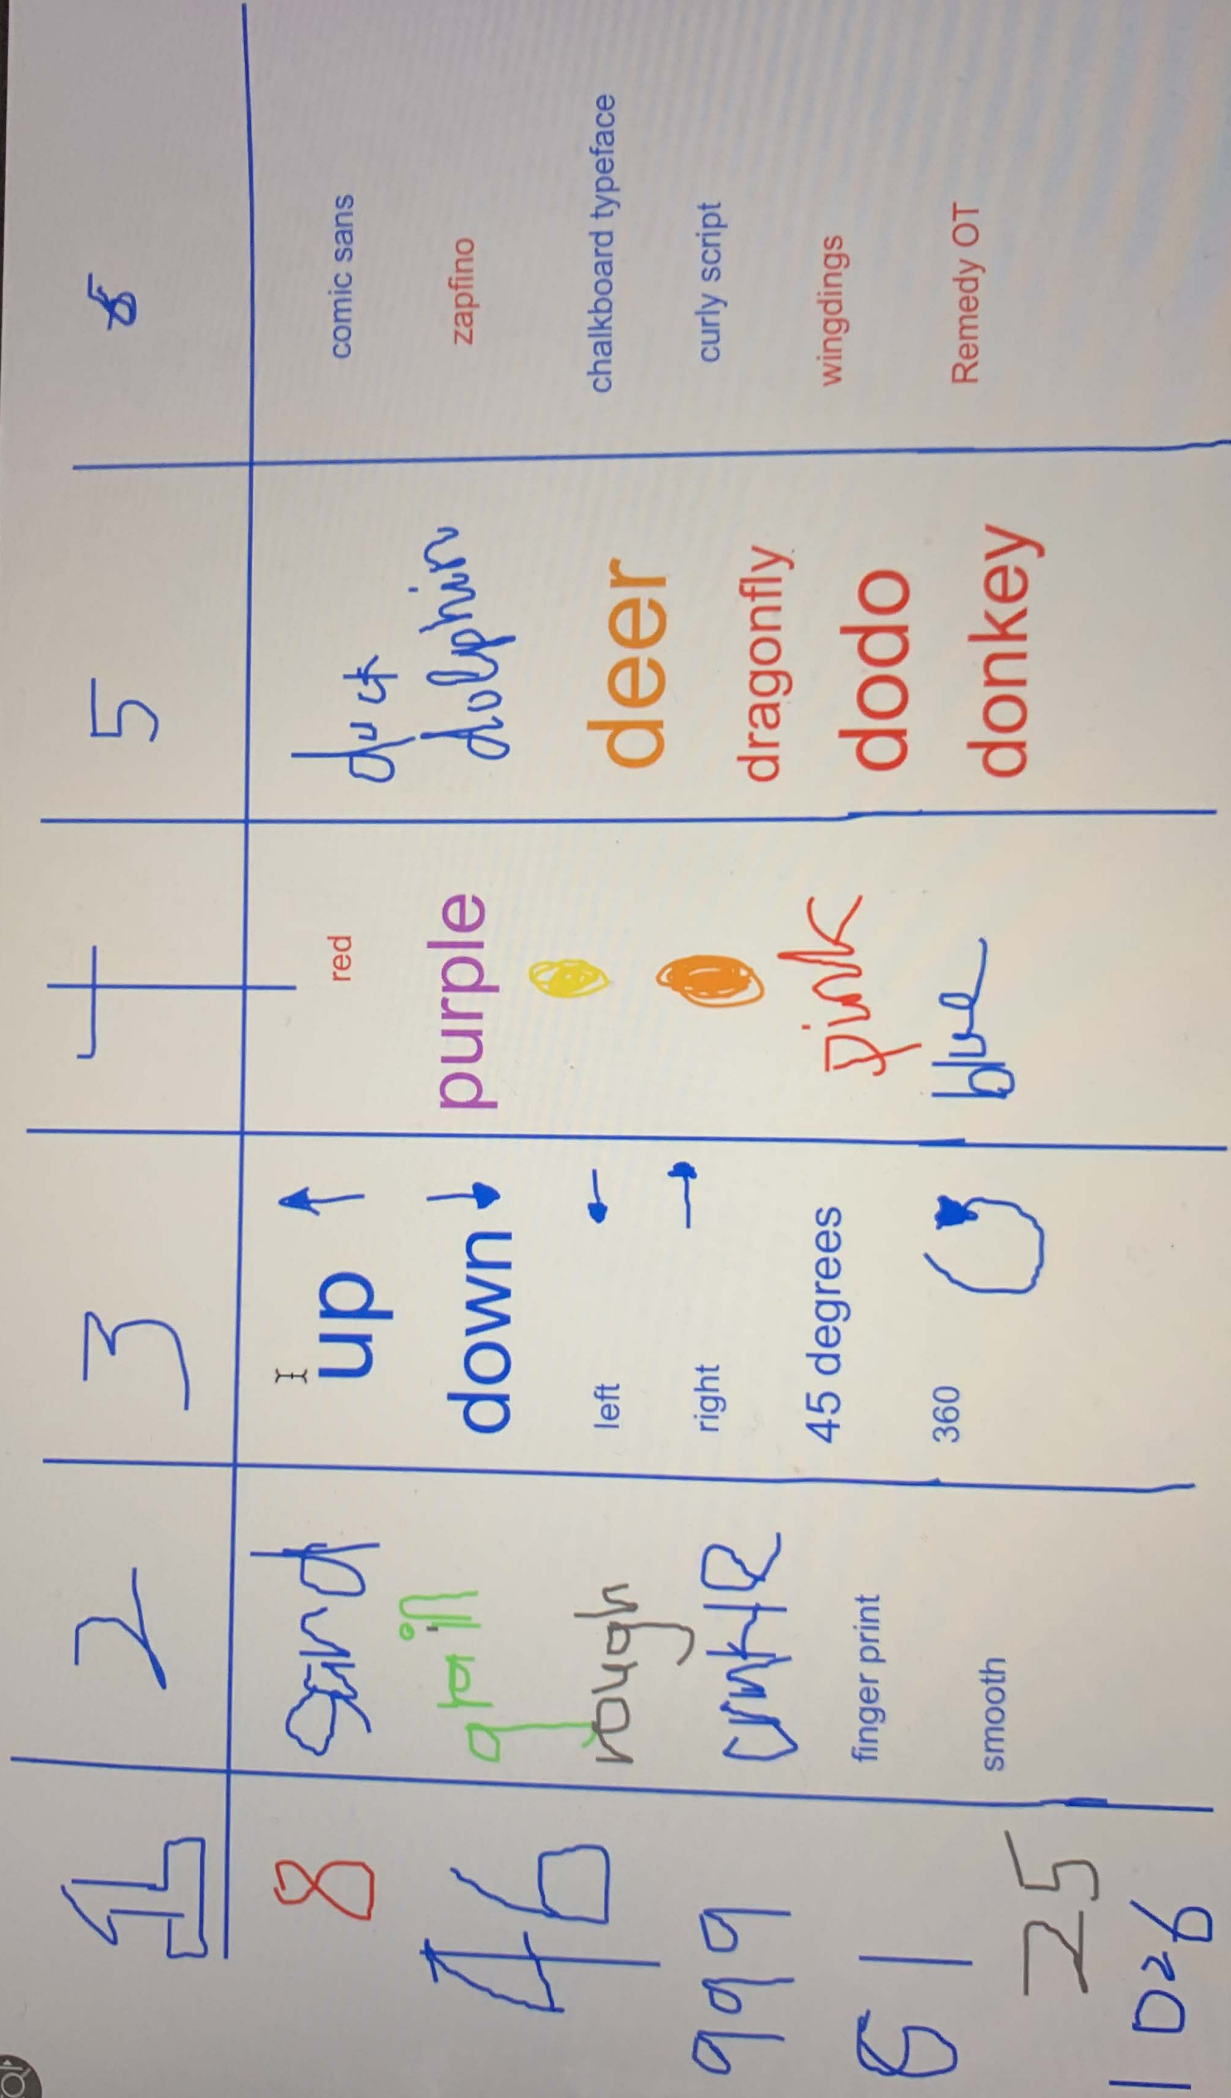 1 2 3 4 5
8 sand up ↑ red duck comic sans
46 grain down ↓ purple dolphin zapfino
999 rough left ← deer chalkboard typeface
61 right → dragonfly curly script
25 finger print 45 degrees pink dodo wingdings
1026 smooth 360 blue donkey Remedy OT